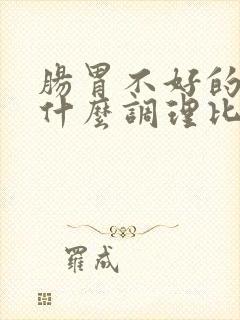 腸胃不好的
什麼調理比
羅成